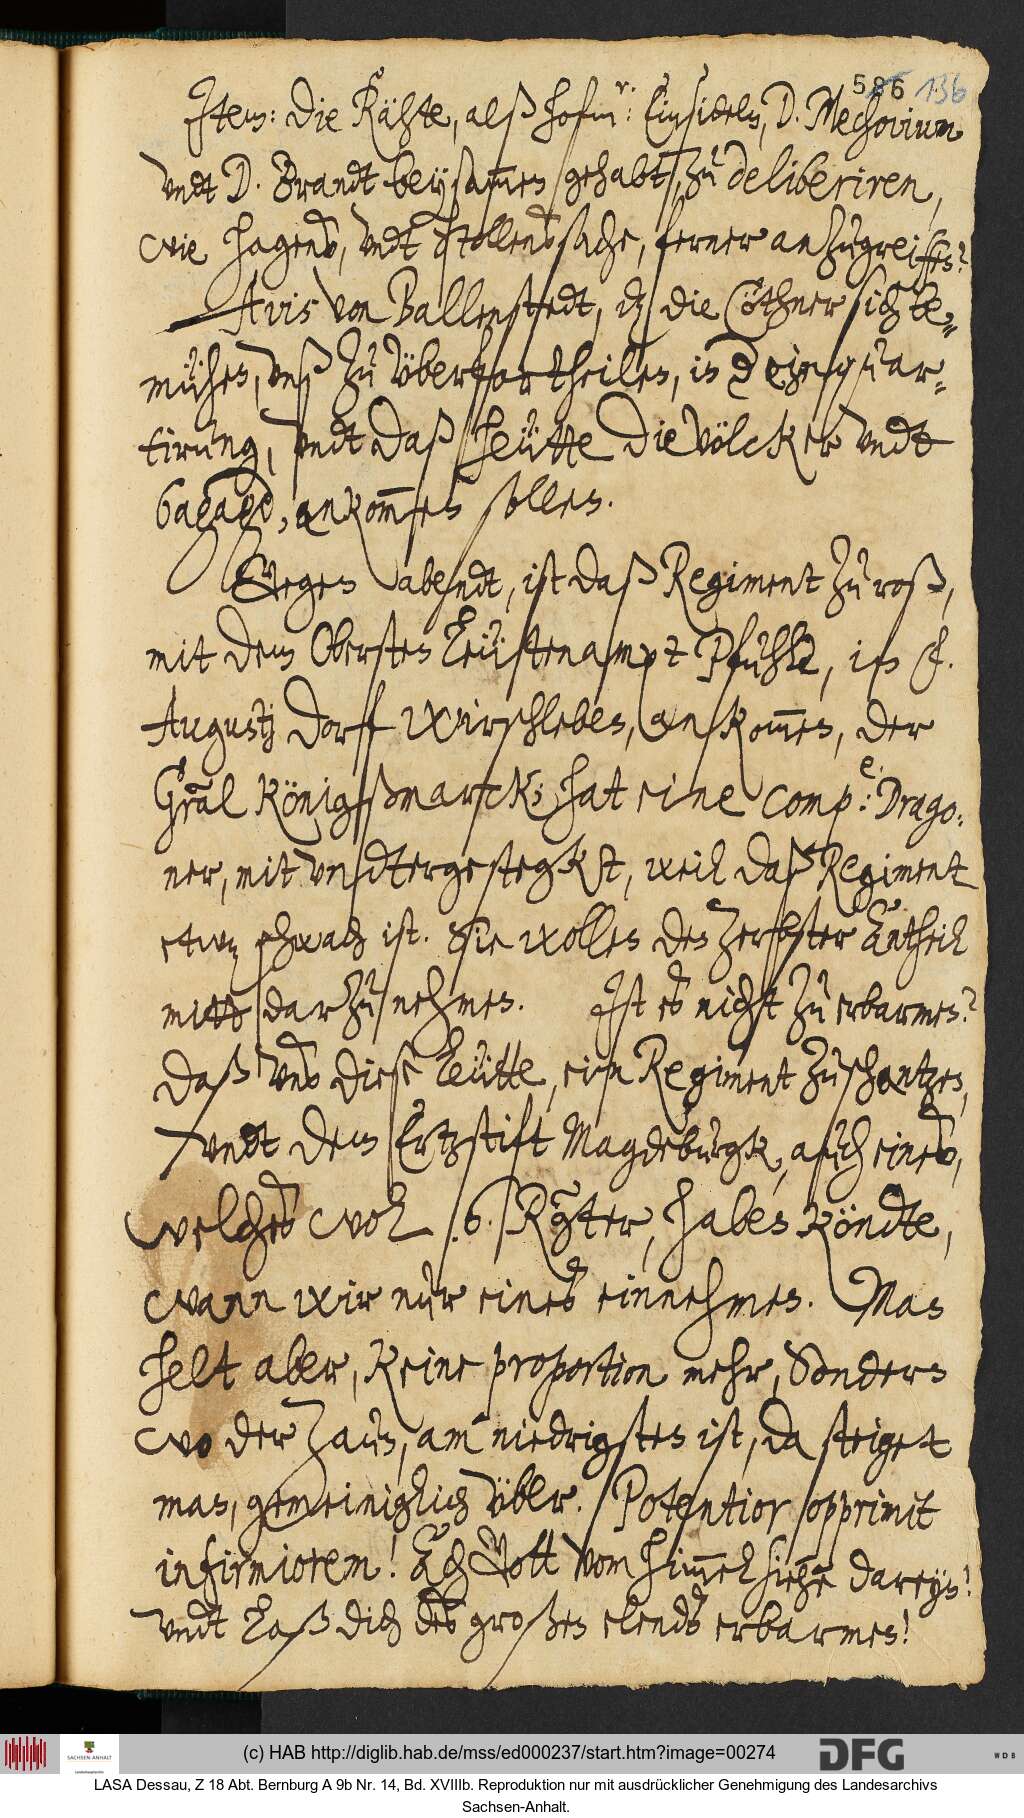 586 136
Item: die Rähte, alß hofmr: Einsideln, D. Mechovium
vndt D. Brandt beysam̅en gehabt, zu deliberiren,
wie hagens, vndt Stollens sache, ferner anzugreiffen?
Avis von Ballenstedt, dz die Cöthner sich be-
mühen, vnß zu übervortheilen, in der einquar-
tirung, vndt daß heütte die völcker vndt
bagage, ankom̅en sollen.
Gegen abendt, ist daß Regiment zu roß,
mit dem Obersten Leütenampt Pfuhl, in F.
Augustj dorff Wirschleben, ankom̅en, der
Gräl Königßmarck; hat eine Comp.e: Drago-
ner, mit vndtergestegkt, weil daß Regiment
etwaß schwach ist. Sie wollen den Zerbster Antheil
mitt darzu nehmen. Ist es nicht zu erbarmen?
daß vns diese leütte, ein Regiment zuschantzen,
vndt dem Ertzstift Magdeburgk, auch eines,
welches wol 6. Qvartier, haben köndte,
wann wir nur eines einnehmen. Man
helt aber, keine proportion mehr, Sondern
wo der Zaun, am niedrigsten ist, da steiget
man, gemeiniglich über. Potentior opprimit
infirmiorem! Ach Gott vom Him̅el siehe dareyn!
vndt laß dich des großen elends erbarmen!
(c) HAB http://diglib.hab.de/mss/ed000237/start.htm?image=00274
SACHSEN-ANHALT
DFG
WDB
LASA Dessau, Z 18 Abt. Bernburg A 9b Nr. 14, Bd. XVIIIb. Reproduktion nur mit ausdrücklicher Genehmigung des Landesarchivs
Sachsen-Anhalt.